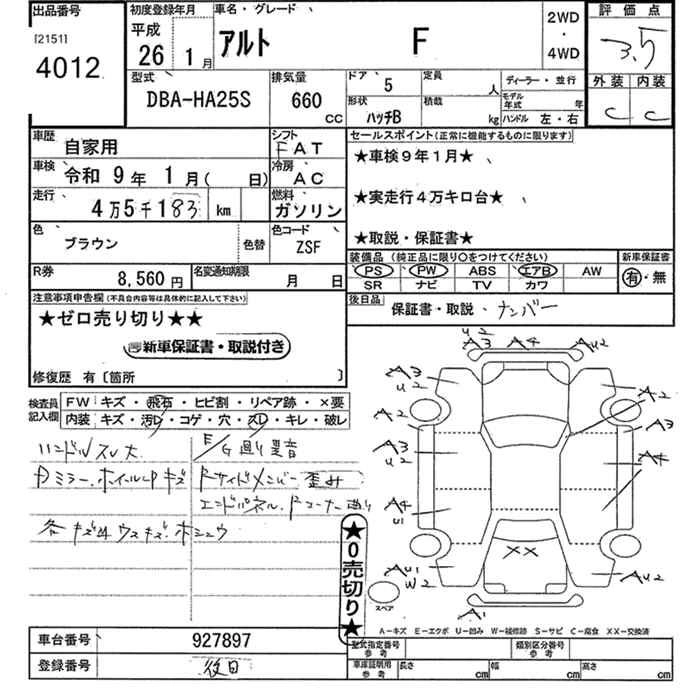 出品番号
[2151]
4012
初度登録年月
平成
26 1月
車名・グレード
アルト F
2WD
・
4WD
評価点
3.5
外装 内装
C C
型式
DBA-HA25S
排気量
660 CC
ドア 5
形状 ハッチB
定員 人
積載 kg
ディーラー・並行
モデル年式 年
ハンドル 左・右
車歴 自家用
シフト FAT
車検 令和 9年 1月( 日)
冷房 AC
走行 4万5千183 km
燃料 ガソリン
色 ブラウン
色替
色コード ZSF
R券 8,560円
名変通知期限 月 日
セールスポイント(正常に機能するものに限ります)
★車検9年1月★
★実走行4万キロ台★
★取説・保証書★
装備品 (純正品に限り○をつけてください)
PS PW ABS エアB AW
SR ナビ TV カワ
新車保証書
有・無
後日品 保証書・取説・ナンバー
注意事項申告欄(不具合内容等は具体的に記入して下さい)
★ゼロ売り切り★★
新車保証書・取説付き
修復歴 有〔箇所 〕
検査員記入欄
FW キズ・飛石・ヒビ割・リペア跡・×要
内装 キズ・汚レ・コゲ・穴・スレ・キレ・破レ
ハンドルスレ大
Dミラー.ホイールCPキズ
各キズ凹ウスキズ.ホシュウ
E/G廻り異音
Rサイドメンバー歪み
エンドパネル.Rコーナー廻り
★0売切り★
U2
A3 A4 AU2
A3
U2
A2
A2
A3
A3
U2
A4
A4
U1
XX
AU1
W2
AU2
A1
スペア
A-キズ E-エクボ U-凹み W-補修跡 S-サビ C-腐食 XX-交換済
車台番号 927897
登録番号 後日
型式指定番号 参考
類別区分番号 参考
車庫証明用 参考
長さ cm 幅 cm 高さ cm